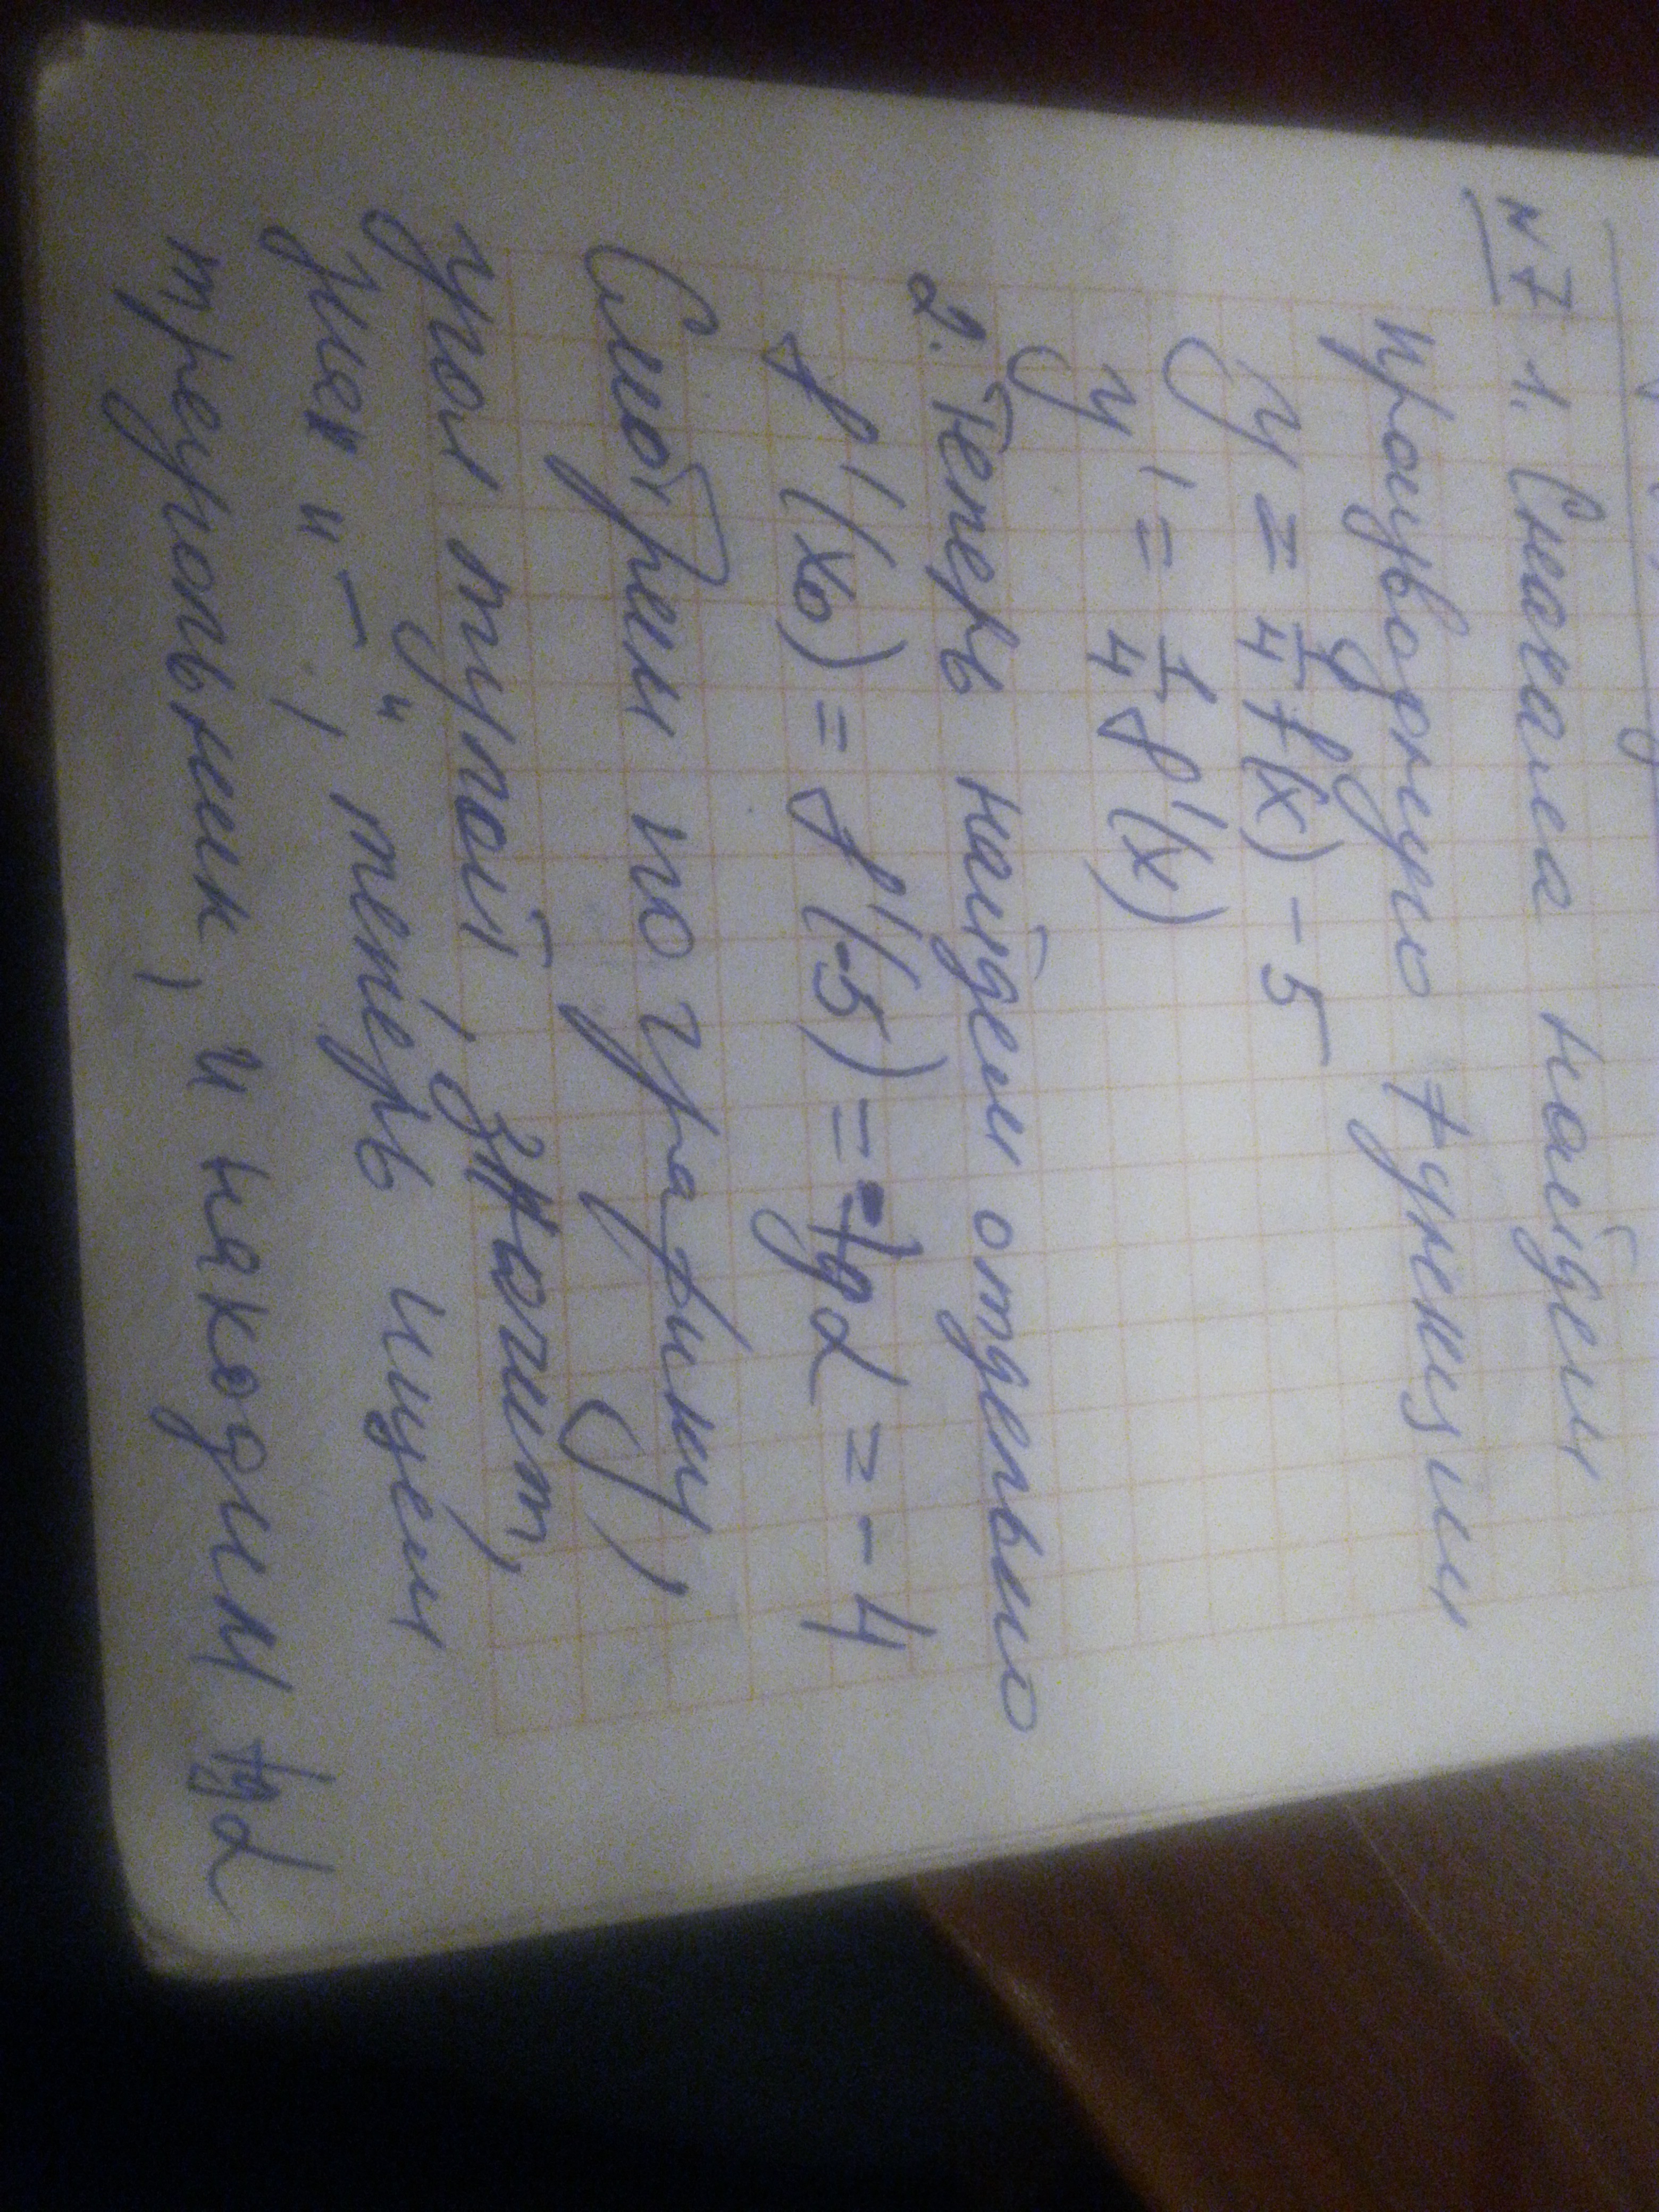 №7 1. Сначала найдем
производную функции
y = 1/4 f(x) - 5
y' = 1/4 f'(x)
2. Теперь найдем отдельно
f'(x₀) = f'(-5) = tgα = -4
Смотрим по графику,
угол тупой, значит,
знак "-", теперь ищем
треугольник, и находим tgα